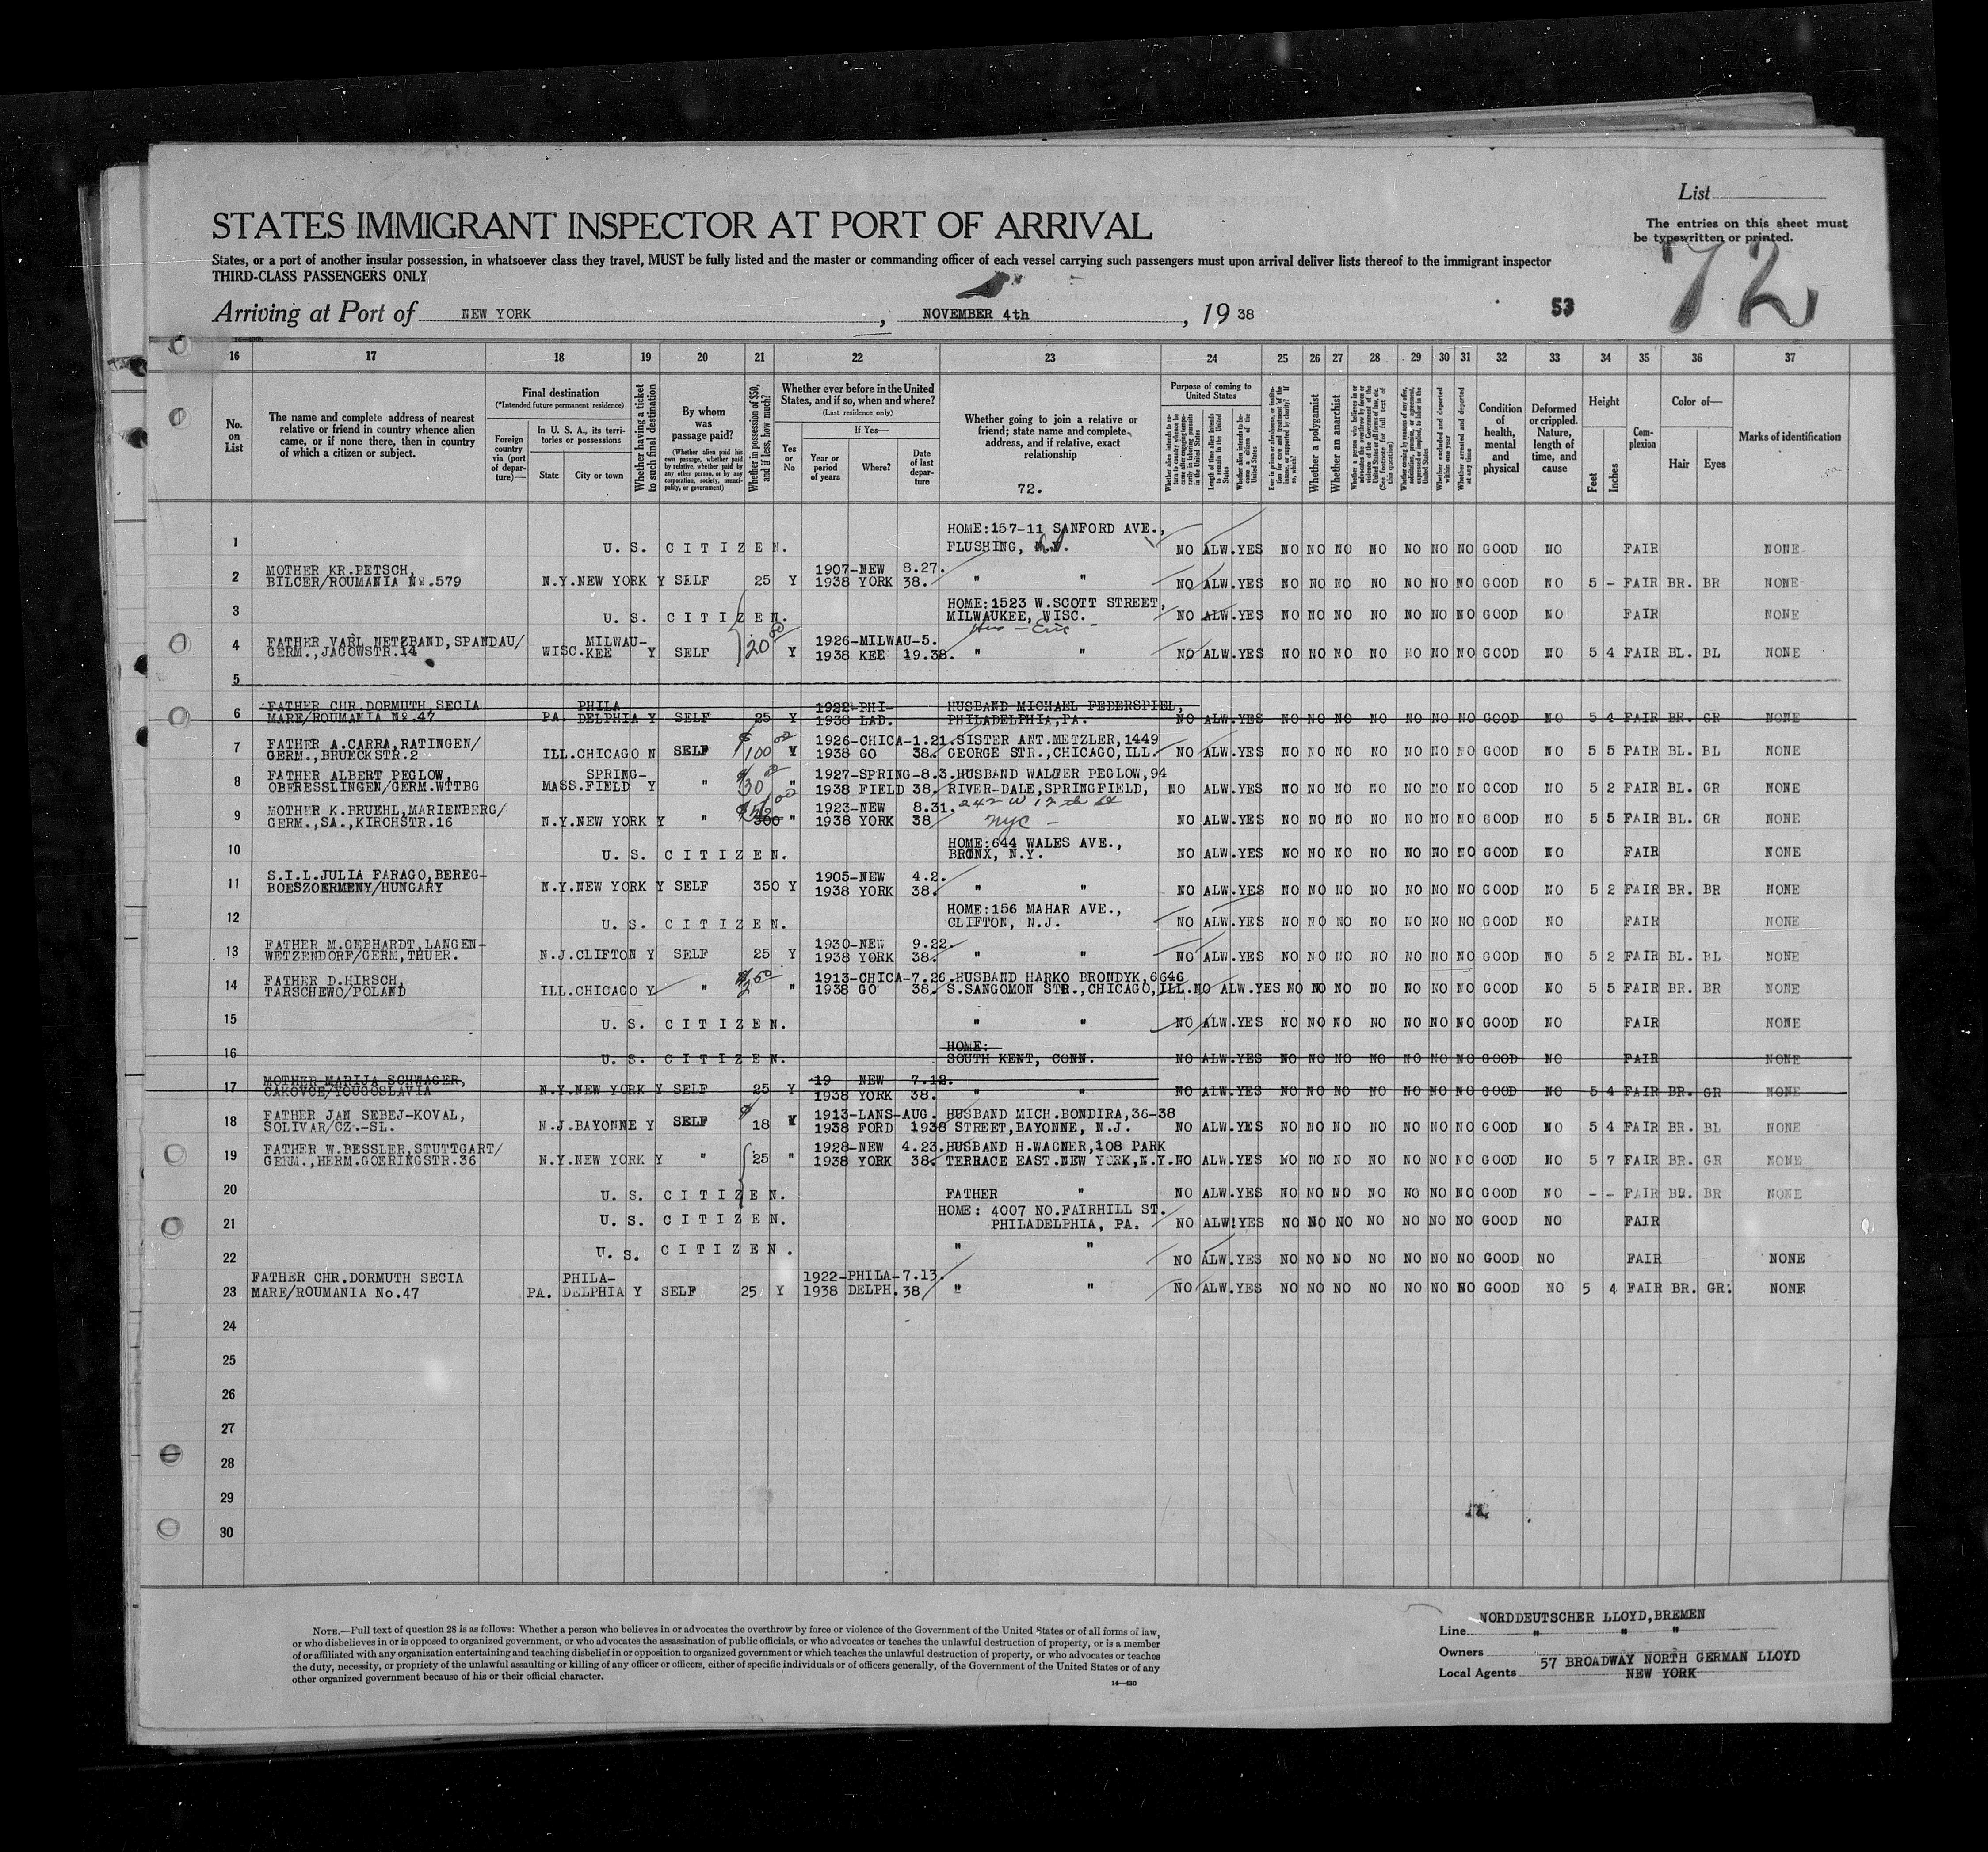 List
STATES IMMIGRANT INSPECTOR AT PORT OF ARRIVAL
The entries on this sheet must
be typewritten or printed.
States, or a port of another insular possession, in whatsoever class they travel, MUST be fully listed and the master or commanding officer of each vessel carrying such passengers must upon arrival deliver lists thereof to the immigrant inspector
THIRD-CLASS PASSENGERS ONLY
72
Arriving at Port of NEW YORK, NOVEMBER 4th, 19 38
53
16 17 18 19 20 21 22 23 24 25 26 27 28 29 30 31 32 33 34 35 36 37
No. on List
The name and complete address of nearest relative or friend in country whence alien came, or if none there, then in country of which a citizen or subject.
Final destination
(*Intended future permanent residence)
Foreign country via (port of departure)—
In U. S. A., its territories or possessions
State
City or town
Whether having a ticket to such final destination
By whom was passage paid?
(Whether alien paid his own passage, whether paid by relative, whether paid by any other person, or by any corporation, society, municipality, or government)
Whether in possession of $50, and if less, how much?
Whether ever before in the United States, and if so, when and where?
(Last residence only)
Yes or No
If Yes—
Year or period of years
Where?
Date of last departure
Whether going to join a relative or friend; state name and complete address, and if relative, exact relationship
72.
Purpose of coming to United States
Length of time alien intends to remain in the United States
Whether alien intends to become a citizen of the United States
Whether a polygamist
Whether an anarchist
Whether excluded and deported within one year
Whether arrested and deported at any time
Condition of health, mental and physical
Deformed or crippled. Nature, length of time, and cause
Height
Feet
Inches
Complexion
Color of—
Hair
Eyes
Marks of identification
HOME:157-11 SANFORD AVE.,
1 U. S. CITIZEN. FLUSHING, N.Y. NO ALW.YES NO NO NO NO NO NO NO GOOD NO FAIR NONE
MOTHER KR.PETSCH, 1907-NEW 8.27.
2 BILCER/ROUMANIA No.579 N.Y.NEW YORK Y SELF 25 Y 1938 YORK 38. " " NO ALW.YES NO NO NO NO NO NO NO GOOD NO 5 - FAIR BR. BR NONE
HOME:1523 W.SCOTT STREET,
3 U. S. CITIZEN. MILWAUKEE, WISC. NO ALW.YES NO NO NO NO NO NO NO GOOD NO FAIR NONE
Hus - Eric -
FATHER VARL NETZBAND,SPANDAU/ MILWAU- 1926-MILWAU-5.
4 GERM.,JAGOWSTR.14 WISC.KEE Y SELF 20 00 Y 1938 KEE 19.38. " " NO ALW.YES NO NO NO NO NO NO NO GOOD NO 5 4 FAIR BL. BL NONE
5
FATHER CHR.DORMUTH SECIA PHILA 1922-PHI- HUSBAND MICHAEL PEDERSPIEL,
6 MARE/ROUMANIA No.47 PA. DELPHIA Y SELF 25 Y 1938 LAD. PHILADELPHIA,PA. NO ALW.YES NO NO NO NO NO NO NO GOOD NO 5 4 FAIR BR. GR NONE
FATHER A.CARRA,RATINGEN/ 1926-CHICA-1.21.SISTER ANT.METZLER,1449
7 GERM.,BRUECKSTR.2 ILL.CHICAGO N SELF $100 00 Y 1938 GO 38. GEORGE STR.,CHICAGO,ILL. NO ALW.YES NO NO NO NO NO NO NO GOOD NO 5 5 FAIR BL. BL NONE
FATHER ALBERT PEGLOW, SPRING- 1927-SPRING-8.3.HUSBAND WALTER PEGLOW,94
8 OBERESSLINGEN/GERM.WTTBG MASS.FIELD Y " $30 00 " 1938 FIELD 38. RIVER-DALE,SPRINGFIELD, NO ALW.YES NO NO NO NO NO NO NO GOOD NO 5 2 FAIR BL. GR NONE
MOTHER K.BRUEHL,MARIENBERG/ 1923-NEW 8.31. 242 W 12 th St
9 GERM.,SA.,KIRCHSTR.16 N.Y.NEW YORK Y " 300 " 1938 YORK 38 NYC - NO ALW.YES NO NO NO NO NO NO NO GOOD NO 5 5 FAIR BL. GR NONE
HOME:644 WALES AVE.,
10 U. S. CITIZEN. BRONX, N.Y. NO ALW.YES NO NO NO NO NO NO NO GOOD NO FAIR NONE
S.I.L.JULIA FARAGO,BEREG- 1905-NEW 4.2.
11 BOESZOERMENY/HUNGARY N.Y.NEW YORK Y SELF 350 Y 1938 YORK 38. " " NO ALW.YES NO NO NO NO NO NO NO GOOD NO 5 2 FAIR BR. BR NONE
HOME:156 MAHAR AVE.,
12 U. S. CITIZEN. CLIFTON, N.J. NO ALW.YES NO NO NO NO NO NO NO GOOD NO FAIR NONE
FATHER M.GEPHARDT,LANGEN- 1930-NEW 9.22.
13 WETZENDORF/GERM,THUER. N.J.CLIFTON Y SELF 25 Y 1938 YORK 38. " " NO ALW.YES NO NO NO NO NO NO NO GOOD NO 5 2 FAIR BL. BL NONE
FATHER D.HIRSCH, 1913-CHICA-7.26.HUSBAND HARKO BRONDYK,6646
14 TARSCHEWO/POLAND ILL.CHICAGO Y " " 1938 GO 38. S.SANGOMON STR.,CHICAGO,ILL.NO ALW.YES NO NO NO NO NO NO NO GOOD NO 5 5 FAIR BR. BR NONE
15 U. S. CITIZEN. " " NO ALW.YES NO NO NO NO NO NO NO GOOD NO FAIR NONE
HOME:
16 U. S. CITIZEN. SOUTH KENT, CONN. NO ALW.YES NO NO NO NO NO NO NO GOOD NO FAIR NONE
MOTHER MARIJA SCHWAGER, 19 NEW 7.12.
17 CAKOVCE/YOUGOSLAVIA N.Y.NEW YORK Y SELF 25 Y 1938 YORK 38. " " NO ALW.YES NO NO NO NO NO NO NO GOOD NO 5 4 FAIR BR. GR NONE
FATHER JAN SEBEJ-KOVAL, 1913-LANS-AUG. HUSBAND MICH.BONDIRA,36-38
18 SOLIVAR/CZ.-SL. N.J.BAYONNE Y SELF $18 Y 1938 FORD 1938 STREET,BAYONNE, N.J. NO ALW.YES NO NO NO NO NO NO NO GOOD NO 5 4 FAIR BR. BL NONE
FATHER W.BESSLER,STUTTGART/ 1928-NEW 4.23.HUSBAND H.WAGNER,108 PARK
19 GERM.,HERM.GOERINGSTR.36 N.Y.NEW YORK Y " 25 " 1938 YORK 38. TERRACE EAST.NEW YORK,N.Y.NO ALW.YES NO NO NO NO NO NO NO GOOD NO 5 7 FAIR BR. GR NONE
20 U. S. CITIZEN. FATHER " NO ALW.YES NO NO NO NO NO NO NO GOOD NO - - FAIR BR. BR NONE
HOME: 4007 NO.FAIRHILL ST.
21 U. S. CITIZEN. PHILADELPHIA, PA. NO ALW.YES NO NO NO NO NO NO NO GOOD NO FAIR
22 U. S. CITIZEN. " " NO ALW.YES NO NO NO NO NO NO NO GOOD NO FAIR NONE
FATHER CHR.DORMUTH SECIA PHILA- 1922-PHILA-7.13.
23 MARE/ROUMANIA No.47 PA. DELPHIA Y SELF 25 Y 1938 DELPH.38 " " NO ALW.YES NO NO NO NO NO NO NO GOOD NO 5 4 FAIR BR. GR. NONE
24
25
26
27
28
29
30
NOTE.—Full text of question 28 is as follows: Whether a person who believes in or advocates the overthrow by force or violence of the Government of the United States or of all forms of law,
or who disbelieves in or is opposed to organized government, or who advocates the assassination of public officials, or who advocates or teaches the unlawful destruction of property, or is a member
of or affiliated with any organization entertaining and teaching disbelief in or opposition to organized government or which teaches the unlawful destruction of property, or who advocates or teaches
the duty, necessity, or propriety of the unlawful assaulting or killing of any officer or officers, either of specific individuals or of officers generally, of the Government of the United States or of any
other organized government because of his or their official character.
14—430
NORDDEUTSCHER LLOYD,BREMEN
Line " " "
Owners
57 BROADWAY NORTH GERMAN LLOYD
Local Agents NEW YORK